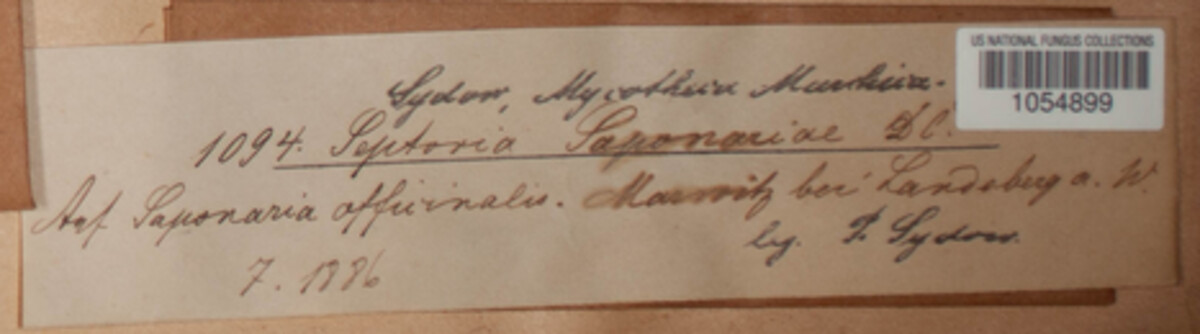 US NATIONAL FUNGUS COLLECTIONS
1054899
Sydow, Mycotheca Marchica.
1094. Septoria Saponariae DC.
Auf Saponaria officinalis. Marwitz bei Landsberg a. W.
leg. P. Sydow.
7. 1886